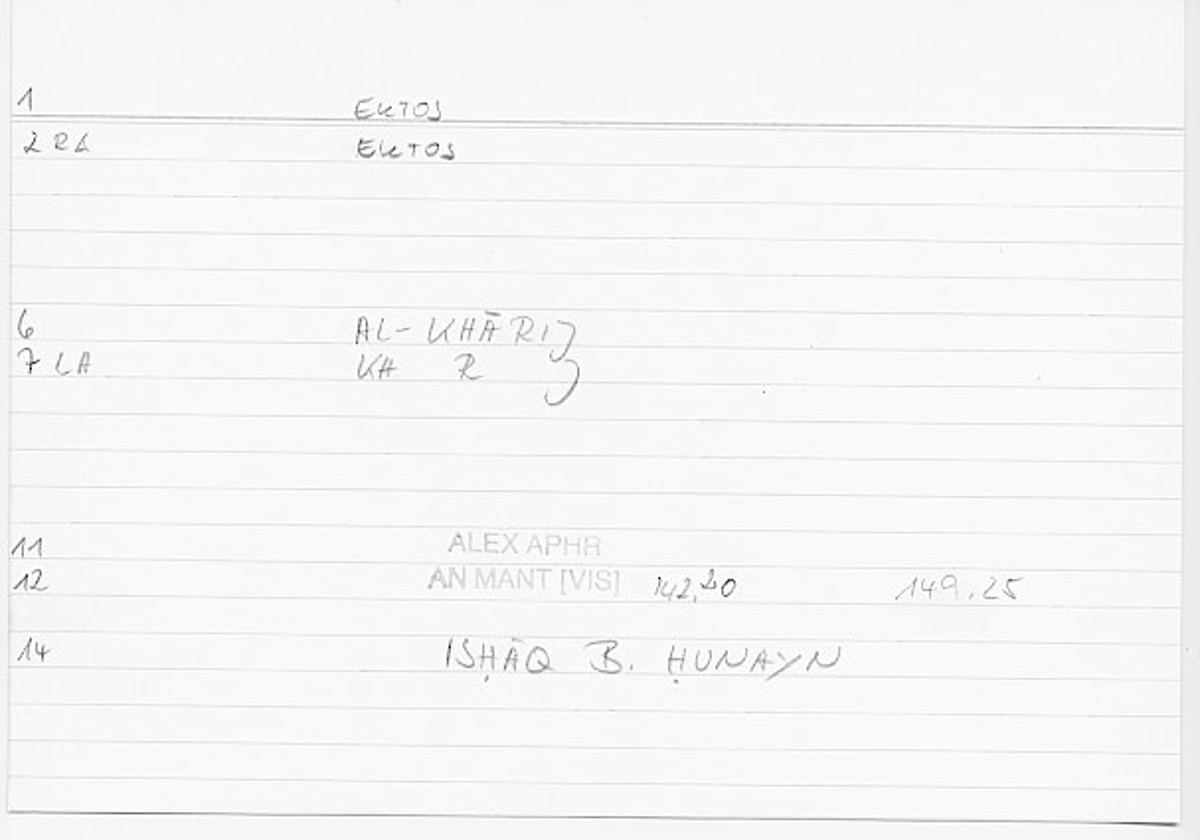 1 EKTOS
2 RA EKTOS
6 AL-KHĀRIJ
7 LA KH R J
11 ALEX APHR
12 AN MANT [VIS] 142.20 149.25
14 ISḤĀQ B. ḤUNAYN